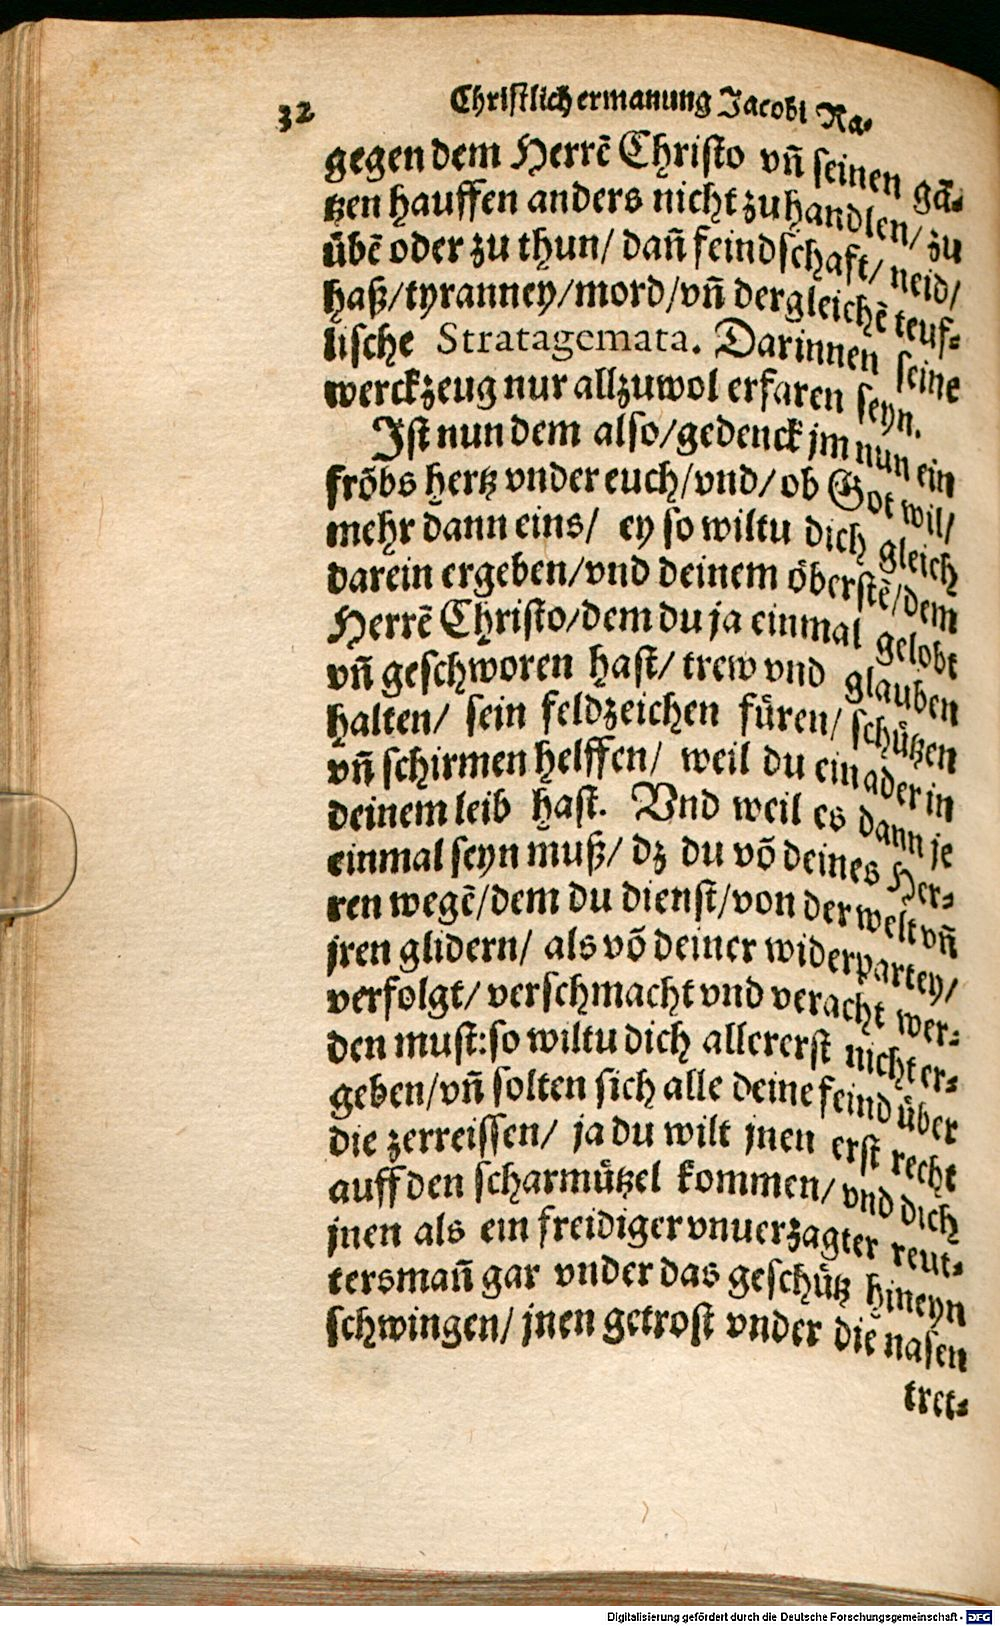 32 Christlich ermanung Jacobi Ra-
gegen dem Herrē Christo vñ seinen gā-
tzen hauffen anders nicht zu handlen/ zu
übē oder zu thun/ dañ feindschafft/ neid/
haß/ tyranney/ mord/ vñ dergleichē teuf-
lische Stratagemata. Darinnen seine
werckzeug nur allzuwol erfaren seyn.
Ist nun dem also/ gedenck jm nun ein
fröbs hertz vnder euch/ vnd/ ob Got wil/
mehr dann eins/ ey so wiltu dich gleich
darein ergeben/ vnd deinem öberstē/ dem
Herrē Christo/ dem du ja einmal gelobt
vñ geschworen hast/ trew vnd glauben
halten/ sein feldzeichen füren/ schützen
vñ schirmen helffen/ weil du ein ader in
deinem leib hast. Vnd weil es dann je
einmal seyn muß/ dz du vō deines Her-
ren wegē/ dem du dienst/ von der welt vñ
jren glidern/ als vō deiner widerpartey/
verfolgt/ verschmacht vnd veracht wer-
den must: so wiltu dich allererst nicht er-
geben/ vñ solten sich alle deine feind über
die zerreissen/ ja du wilt jnen erst recht
auff den scharmützel kommen/ vnd dich
jnen als ein freidiger vnuerzagter reut-
tersmañ gar vnder das geschütz hineyn
schwingen/ jnen getrost vnder die nasen
tret-
Digitalisierung gefördert durch die Deutsche Forschungsgemeinschaft - DFG